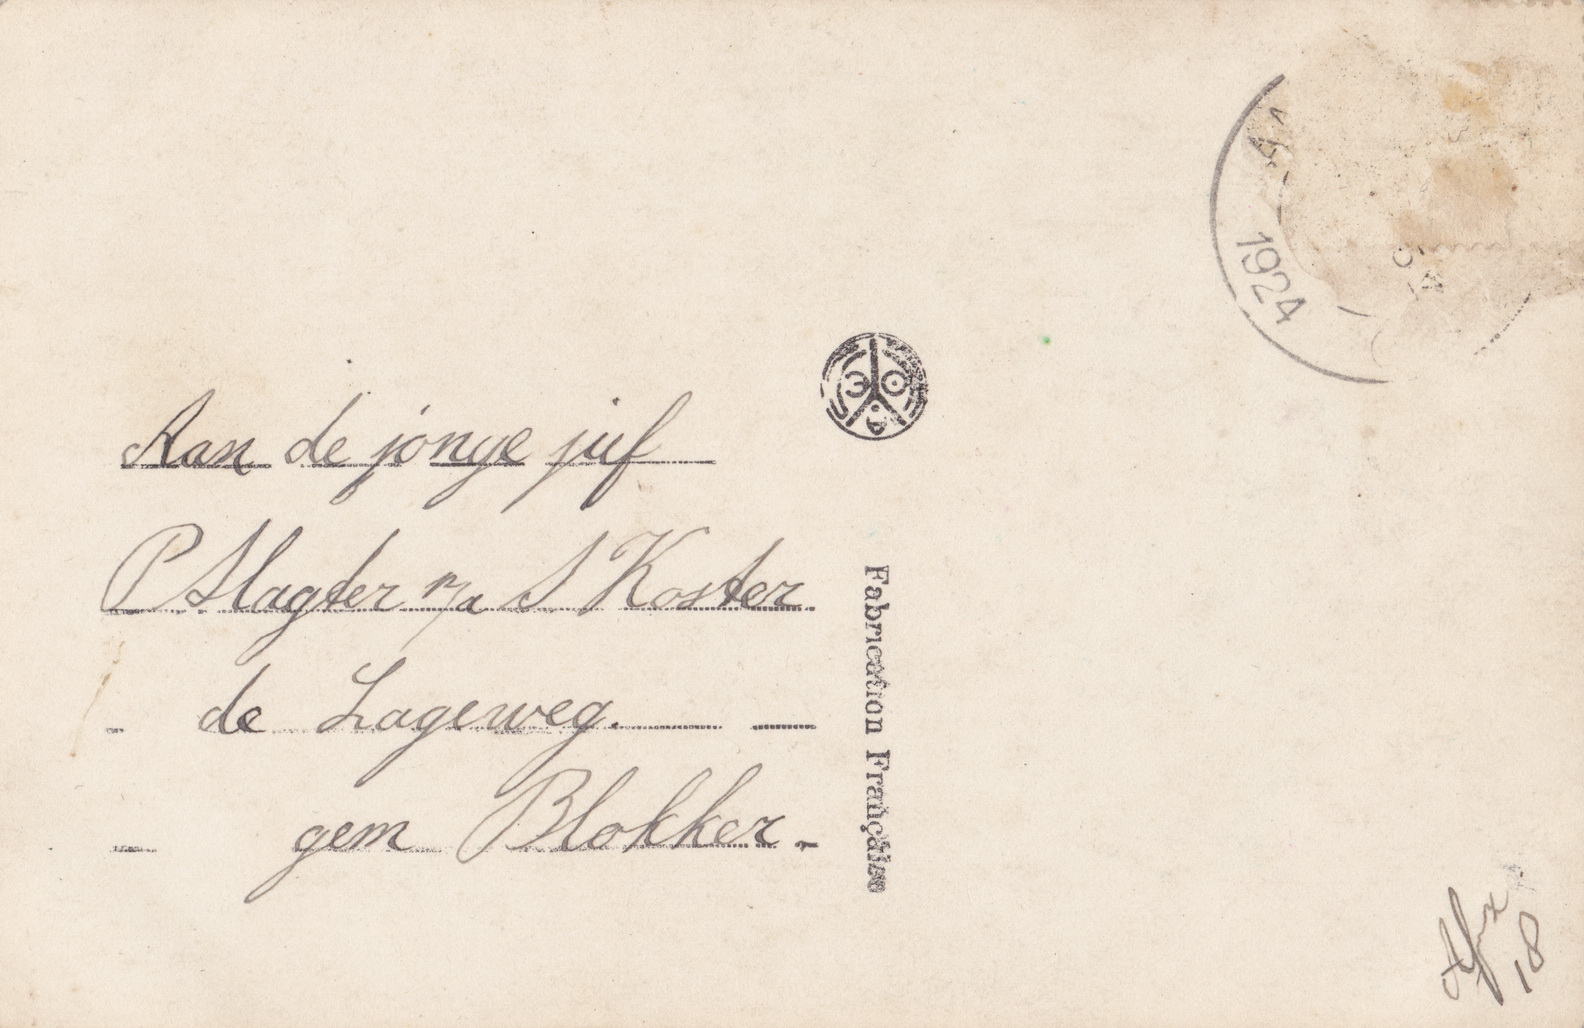 1924
Aan de jonge juf
P Slagter p/a S Koster
de Lageweg.
gem Blokker.
Fabrication Française
18